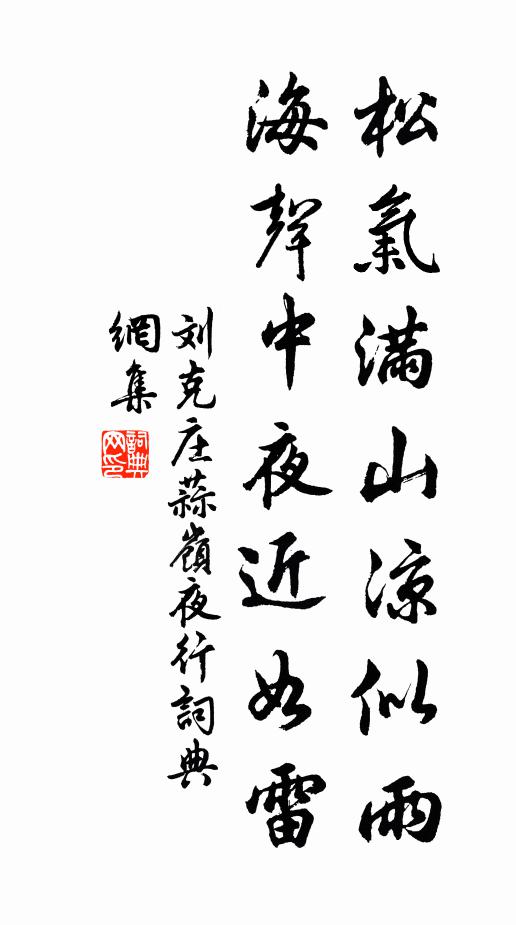 松氣滿山涼似雨
海聲中夜近如雷
刘克庄蒜嶺夜行詞典
網集
詞典
网印